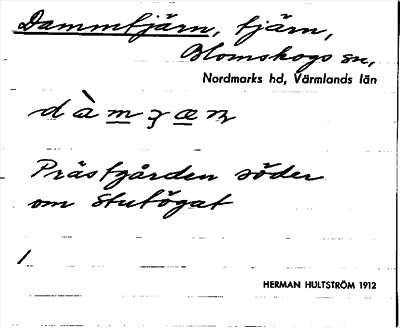 Dammtjärn, tjärn,
Blomskogs sn,
Nordmarks hd, Värmlands län
Prästgården söder
om Stutögat
1
HERMAN HULTSTRÖM 1912